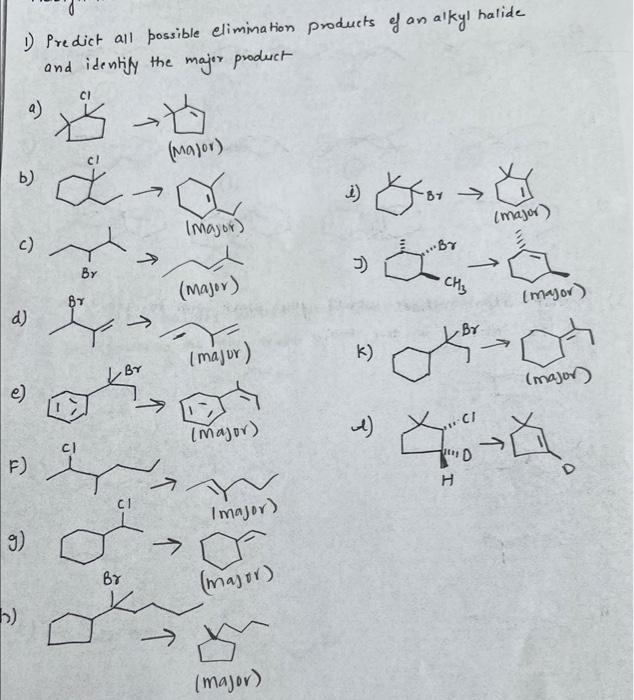 1) Predict all possible elimination products of an alkyl halide
and identify the major product
a)
Cl
(Major)
b)
Cl
(Major)
c)
Br
(Major)
d)
Br
(major)
e)
Br
(Major)
F)
Cl
(major)
g)
Cl
(major)
h)
Br
(major)
i)
Br
(major)
J)
Br
CH3
(major)
k)
Br
(major)
l)
Cl
D
H
D